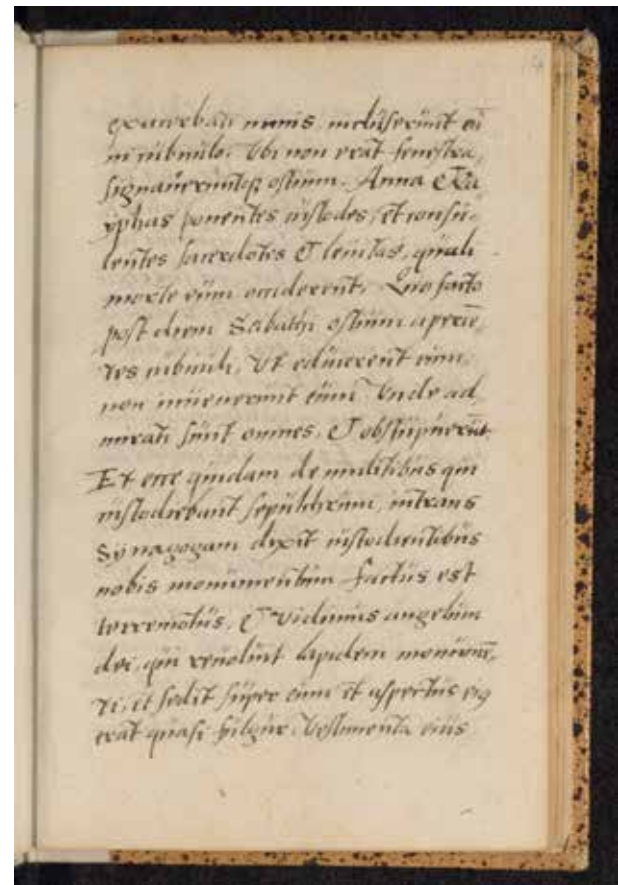 14
exacerbati nimis, incluserunt eū
in cubiculo. Ubi non erat fenestra,
signauerūntqȝ ostium. Anna & Ca
yphas ponentes custodes, et consu-
lentes sacerdotes & leuitas, quali
morte eum occiderent. Quo facto
post diem Sabathi ostium aperiē,
tes cubiculi, Ut educerent eum,
non inuenerunt eum Unde ad,
mirati sunt omnes, & obstupuerūt
Et ecce quidam de militibus qui
custodiebant sepulchrum, intrans
Synagogam dixit custodientibus
nobis monumentum factus est
terremotus, & vidimus angelum
dei, qui reuoluit lapidem monumē,
ti, et sedit super eum et aspectus eiꝯ
erat quasi fulgur. Vestimenta eius